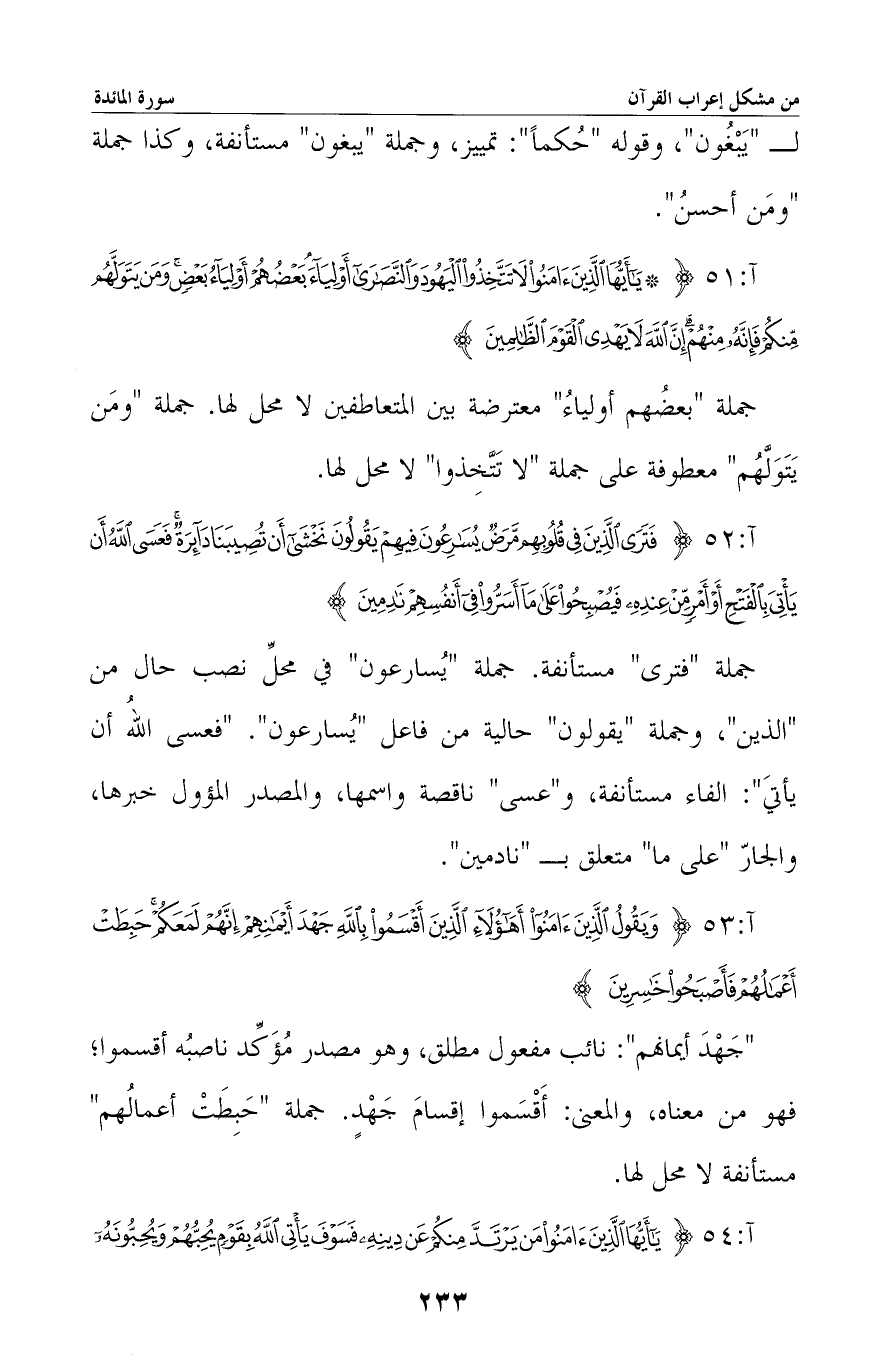 من مشكل إعراب القرآن سورة المائدة
لـــ "يَبْغُون"، وقوله "حُكماً": تمييز، وجملة "يبغون" مستأنفة، وكذا جملة
"ومَن أحسنُ".
آ:٥١ ﴿ * يَٰٓأَيُّهَا ٱلَّذِينَ ءَامَنُوا۟ لَا تَتَّخِذُوا۟ ٱلْيَهُودَ وَٱلنَّصَٰرَىٰٓ أَوْلِيَآءَۘ بَعْضُهُمْ أَوْلِيَآءُ بَعْضٍۚ وَمَن يَتَوَلَّهُم
مِّنكُمْ فَإِنَّهُۥ مِنْهُمْۗ إِنَّ ٱللَّهَ لَا يَهْدِى ٱلْقَوْمَ ٱلظَّٰلِمِينَ ﴾
جملة "بعضُهم أولياءُ" معترضة بين المتعاطفين لا محل لها. جملة "ومَن
يَتَوَلَّهُم" معطوفة على جملة "لا تَتَّخِذوا" لا محل لها.
آ:٥٢ ﴿ فَتَرَى ٱلَّذِينَ فِى قُلُوبِهِم مَّرَضٌ يُسَٰرِعُونَ فِيهِمْ يَقُولُونَ نَخْشَىٰٓ أَن تُصِيبَنَا دَآئِرَةٌۚ فَعَسَى ٱللَّهُ أَن
يَأْتِىَ بِٱلْفَتْحِ أَوْ أَمْرٍ مِّنْ عِندِهِۦ فَيُصْبِحُوا۟ عَلَىٰ مَآ أَسَرُّوا۟ فِىٓ أَنفُسِهِمْ نَٰدِمِينَ ﴾
جملة "فترى" مستأنفة. جملة "يُسارعون" في محلِّ نصب حال من
"الذين"، وجملة "يقولون" حالية من فاعل "يُسارعون". "فعسى اللهُ أن
يأتيَ": الفاء مستأنفة، و"عسى" ناقصة واسمها، والمصدر المؤول خبرها،
والجارّ "على ما" متعلق بـــ "نادمين".
آ:٥٣ ﴿ وَيَقُولُ ٱلَّذِينَ ءَامَنُوٓا۟ أَهَٰٓؤُلَآءِ ٱلَّذِينَ أَقْسَمُوا۟ بِٱللَّهِ جَهْدَ أَيْمَٰنِهِمْ إِنَّهُمْ لَمَعَكُمْۚ حَبِطَتْ
أَعْمَٰلُهُمْ فَأَصْبَحُوا۟ خَٰسِرِينَ ﴾
"جَهْدَ أيمانهم": نائب مفعول مطلق، وهو مصدر مُؤَكِّد ناصبُه أقسموا؛
فهو من معناه، والمعنى: أَقْسَموا إقسامَ جَهْدٍ. جملة "حَبِطَتْ أعمالُهم"
مستأنفة لا محل لها.
آ:٥٤ ﴿ يَٰٓأَيُّهَا ٱلَّذِينَ ءَامَنُوا۟ مَن يَرْتَدَّ مِنكُمْ عَن دِينِهِۦ فَسَوْفَ يَأْتِى ٱللَّهُ بِقَوْمٍ يُحِبُّهُمْ وَيُحِبُّونَهُۥٓ
٢٣٣